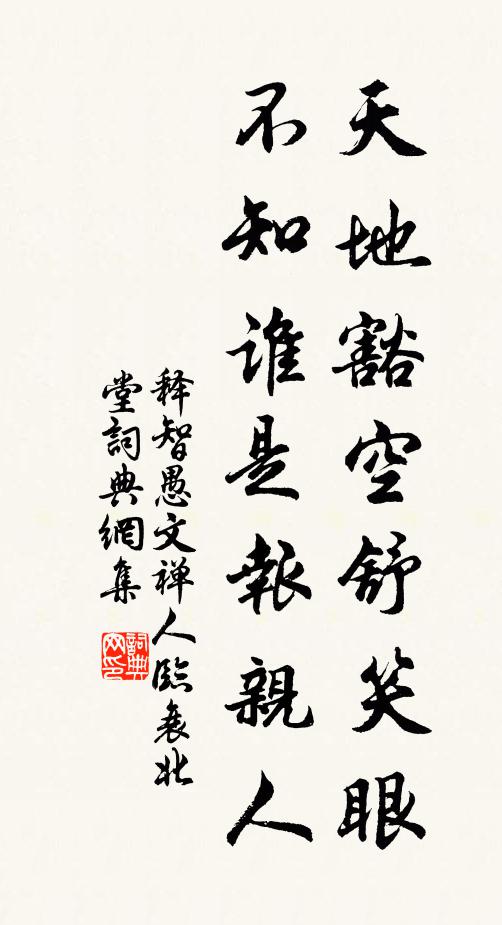 天地豁空舒笑眼
不知誰是報親人
释智愚文禅人臨衰北
堂詞典網集
詞典网印